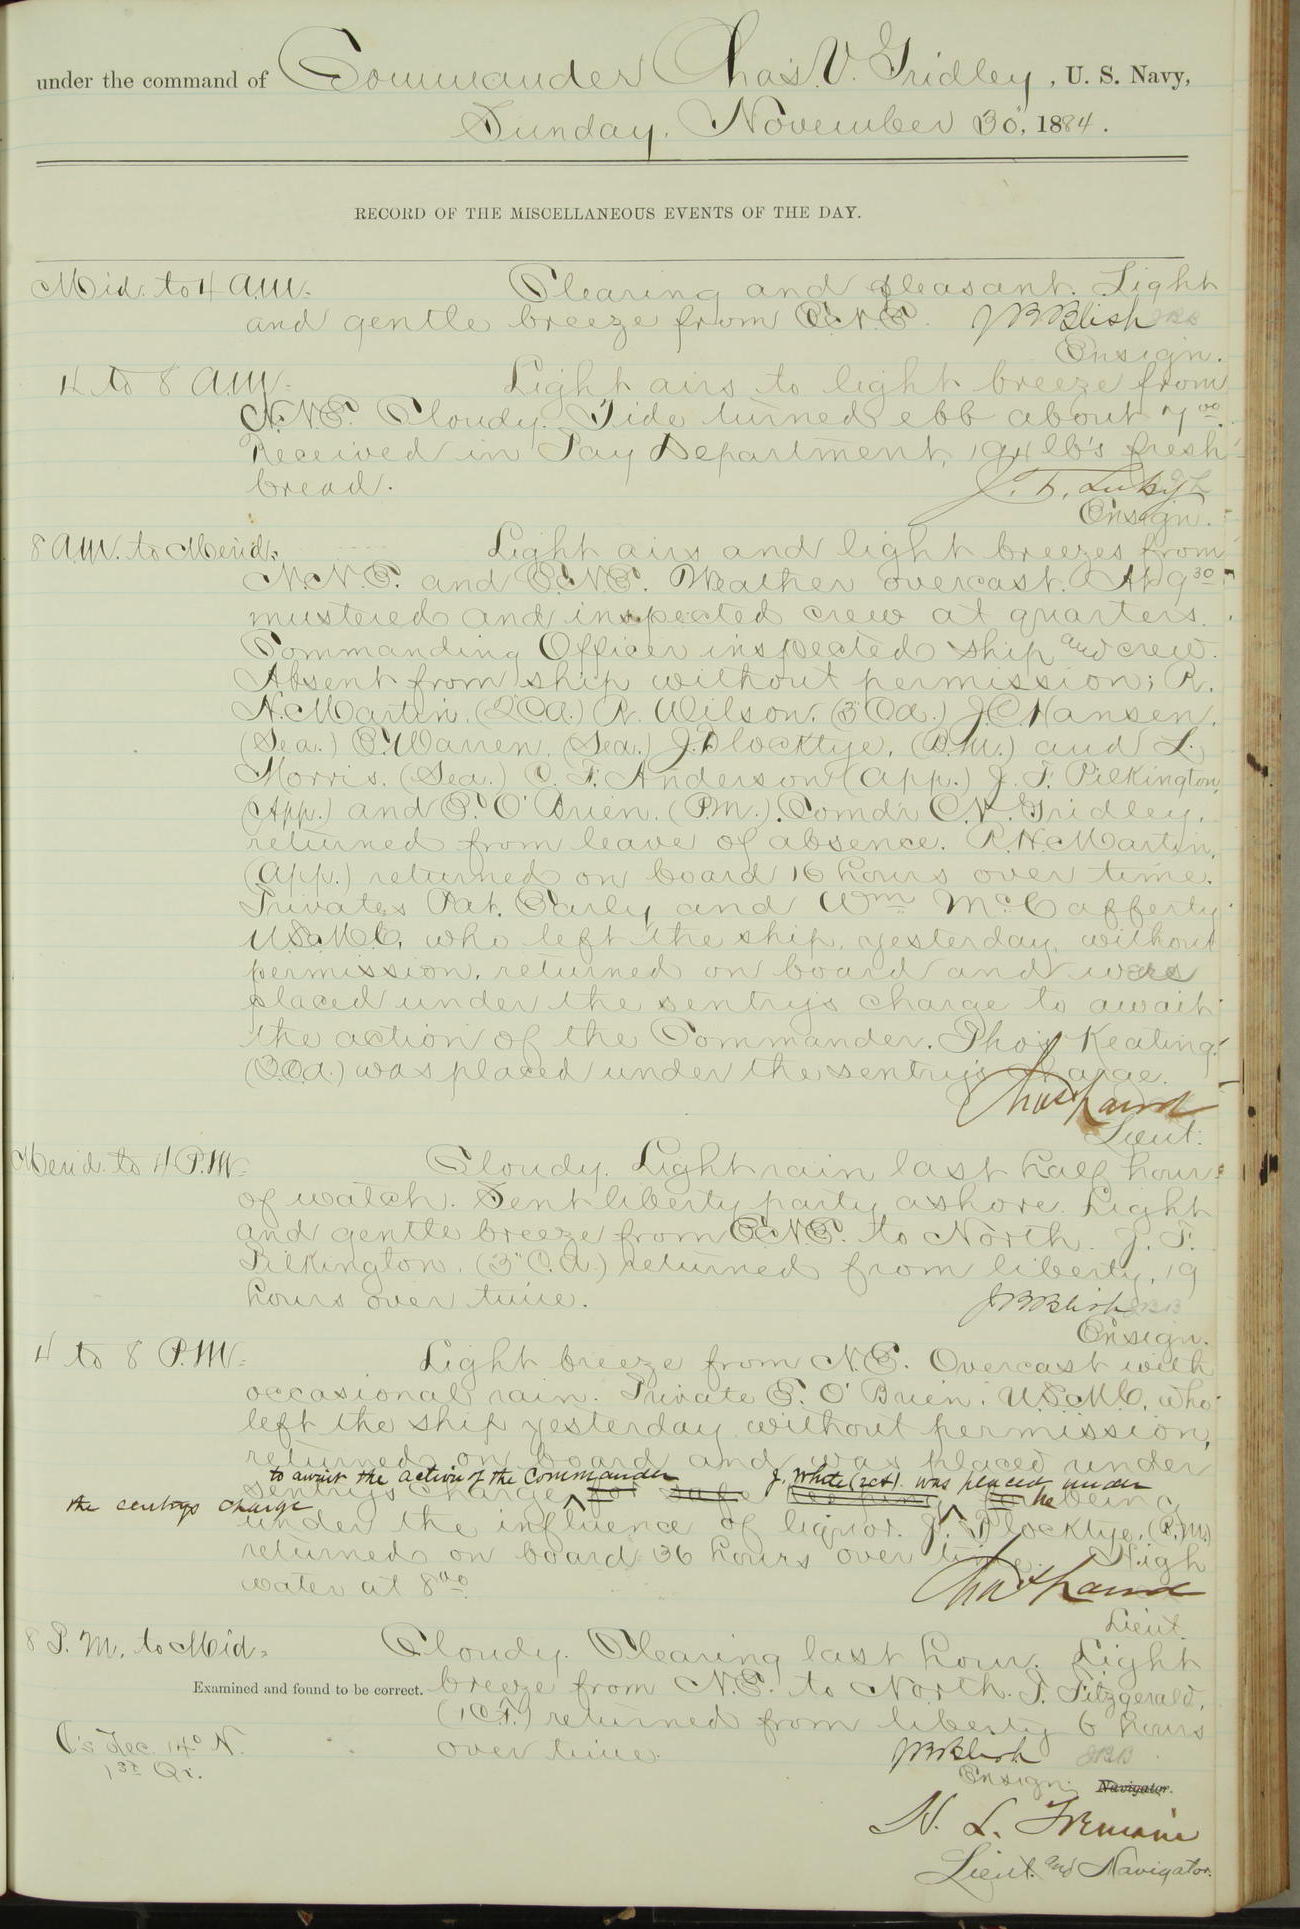 under the command of Commander Chas. V. Gridley, U. S. Navy,
Sunday, November 30, 1884.
RECORD OF THE MISCELLANEOUS EVENTS OF THE DAY.
Mid. to 4 A.M. Clearing and pleasant. Light
and gentle breeze from E.N.E. J B Blish JBB
Ensign.
4 to 8 A.M. Light airs to light breeze from
N.N.E. Cloudy. Tide turned ebb about 7 00.
Received in Pay Department, 194 lb's fresh
bread. J. F. Luby
Ensign.
8 A.M. to Merid. Light airs and light breezes from
N.N.E. and E.N.E. Weather overcast. At 9 30
mustered and inspected crew at quarters.
Commanding Officer inspected ship and crew.
Absent from ship without permission; R.
H. Martin, (2"C.A.) R. Wilson, (3"C.A.) J.C. Hansen,
(Sea.) E. Warren, (Sea.) J. Plocktye, (B.M.) and L.
Morris, (Sea.) C. F. Anderson (App.) J. F. Pilkington,
(App.) and E. O'Brien, (P.M.). Comd'r C.V. Gridley,
returned from leave of absence. R.H. Martin,
(App.) returned on board 16 hours over time.
Privates Pat. Early and Wm McCafferty
U.S.M.C, who left the ship, yesterday, without
permission, returned on board and were
placed under the sentry's charge to await
the action of the Commander. Thos Keating
(3.C.A.) was placed under the sentry's charge.
Lieut.
Merid. to 4 P.M. Cloudy. Light rain last half hour
of watch. Sent liberty party ashore. Light
and gentle breeze from E.N.E. to North. J. F.
Pilkington, (3"C.A.) returned from liberty, 19
hours over time. J B Blish JBB
Ensign.
4 to 8 P.M. Light breeze from N.E. Overcast with
occasional rain. Private E. O'Brien, U.S.M.C, who
left the ship yesterday without permission,
returned on board and was placed under
to await the action of the Commander J. White (2cf). was placed under
sentrys charge for safe keeping he being
the sentrys charge
under the influence of liquor. J. Plocktye, (B.M.)
returned on board 36 hours over time. High
water at 8 00
Lieut.
8 P.M. to Mid. Cloudy. Clearing last hour. Light
Examined and found to be correct. breeze from N.E. to North. T. Fitzgerald,
(1C.F.) returned from liberty 6 hours
('s Dec. 14° N. over time. J B Blish JBB
1st Qr. Ensign. Navigator.
Lieut. and Navigator.